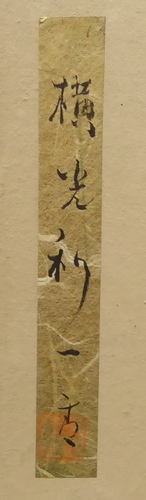 横光利一